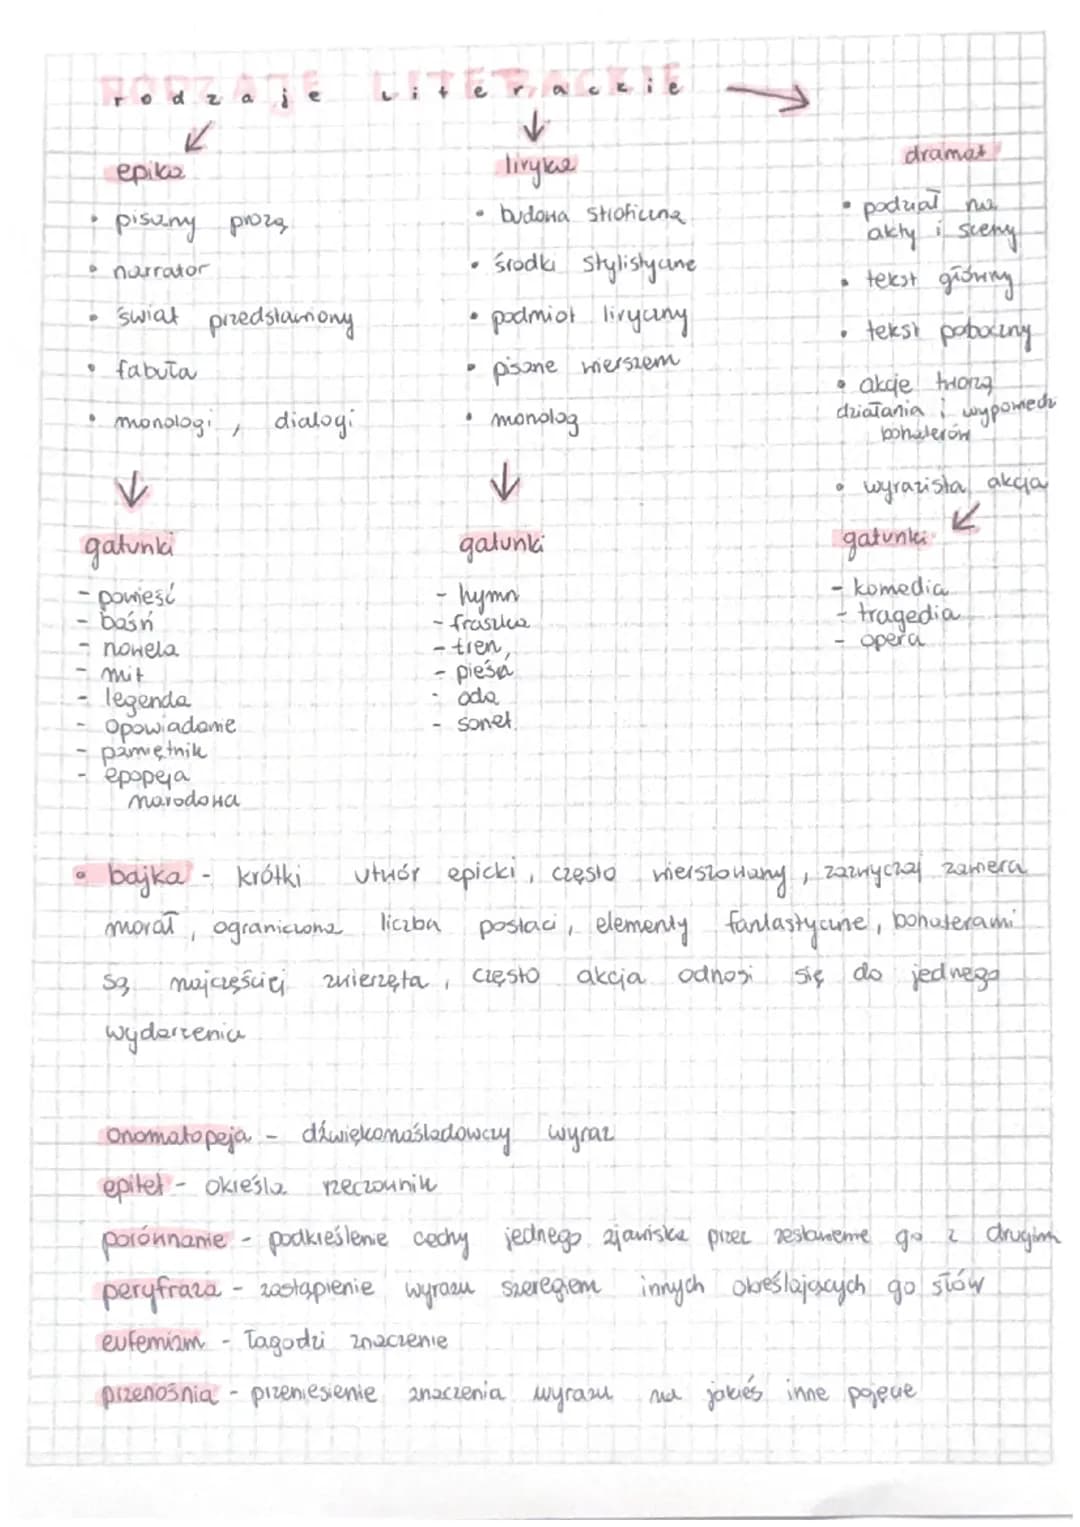 rodzaje literackie
epika
• pisany prozą
• narrator
• świat przedstawiony
• fabuła
• monologi, dialogi
gatunki
- powieść
- baśń
- nowela
- mit
- legenda
- opowiadanie
- pamiętnik
- epopeja
narodowa
liryka
• budowa stroficzna
• środki stylistyczne
• podmiot liryczny
• pisane wierszem
• monolog
gatunki
- hymn
- fraszka
- tren,
- pieśń
- oda
- sonet
dramat
• podział na
akty i sceny
• tekst główny
• tekst poboczny
• akcje tworzą
działania i wypowiedzi
bohaterów
• wyrazista akcja
gatunki
- komedia
- tragedia
- opera
• bajka - krótki utwór epicki, często wierszowany, zazwyczaj zawiera
morał, ograniczona liczba postaci, elementy fantastyczne, bohaterami
są najczęściej zwierzęta, często akcja odnosi się do jednego
wydarzenia
onomatopeja - dźwiękonaśladowczy wyraz
epitet - określa rzeczownik
porównanie - podkreślenie cechy jednego zjawiska przez zestawienie go z drugim
peryfraza - zastąpienie wyrazu szeregiem innych określających go słów
eufemizm - łagodzi znaczenie
przenośnia - przeniesienie znaczenia wyrazu na jakieś inne pojęcie